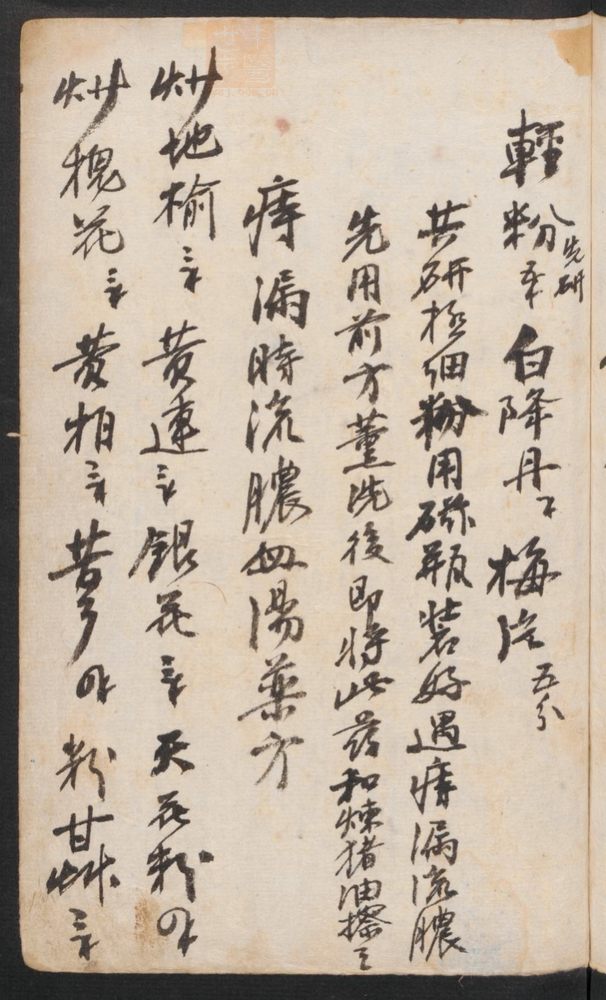 輕粉 先研 白降丹 梅片 五分
共研極細粉用磁瓶裝好遇痔漏流膿
先用前方薰洗後即將此药和煉猪油擦之
痔漏時流膿血湯藥方
炒地榆三錢 黄連三錢 銀花三錢 天花粉
炒槐花三錢 黄柏三錢 苦参 粉甘草三錢